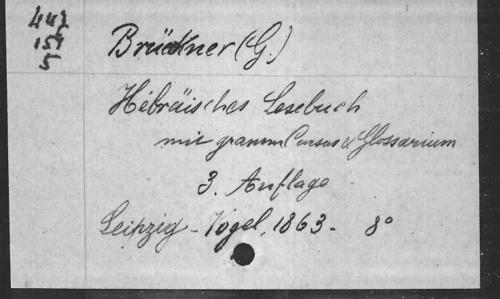 447
159
5
Brückner (G.)
Hébräisches Lesebuch
mit gramm Cursus & Glossarium
3. Auflage
Leipzig - Vogel, 1863 - 8°